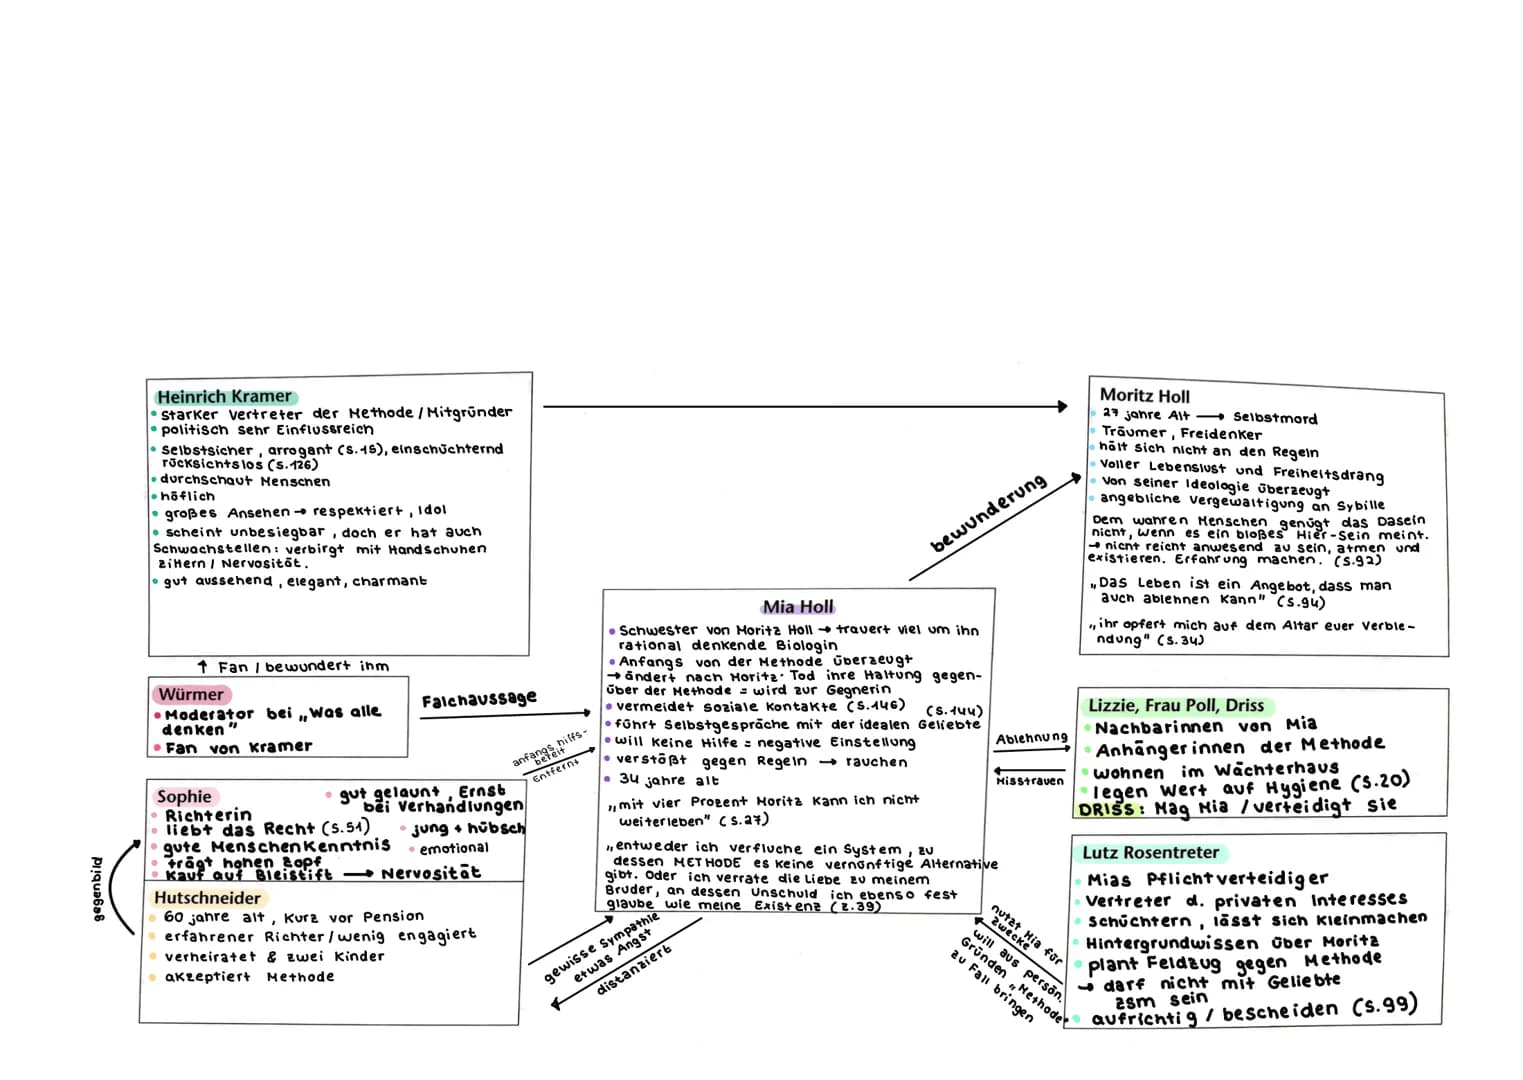 Heinrich Kramer
starker Vertreter der Methode / Mitgründer
politisch sehr Einflussreich
selbstsicher, arrogant (S.15), einschüchternd
rücksichtslos (S.126)
durchschaut Menschen
höflich
großes Ansehen → respektiert, Idol
scheint unbesiegbar, doch er hat auch
Schwachstellen: verbirgt mit Handschuhen
zittern / Nervosität.
gut aussehend, elegant, charmant
↑ Fan / bewundert ihm
Würmer
Moderator bei „Was alle
denken"
Fan von Kramer
Falchaussage
anfangs hilfs-
bereit
Entfernt
Sophie
Richterin
liebt das Recht (S.51)
gute Menschenkenntnis
trägt hohen Zopf
kauf auf Bleistift → Nervosität
gut gelaunt, Ernst
bei Verhandlungen
jung + hübsch
emotional
gegenbild
Hutschneider
60 jahre alt, kurz vor Pension
erfahrener Richter / wenig engagiert
verheiratet & zwei Kinder
akzeptiert Methode
gewisse Sympathie
etwas Angst
distanziert
bewunderung
Mia Holl
Schwester von Moritz Holl → trauert viel um ihn
rational denkende Biologin
Anfangs von der Methode überzeugt
→ ändert nach Moritz' Tod ihre Haltung gegen-
über der Methode = wird zur Gegnerin
vermeidet soziale Kontakte (S.146)
(S.144)
führt Selbstgespräche mit der idealen Geliebte
will keine Hilfe = negative Einstellung
verstößt gegen Regeln → rauchen
34 jahre alt
„mit vier Prozent Moritz kann ich nicht
weiterleben" (S.27)
„entweder ich verfluche ein System, zu
dessen METHODE es keine vernünftige Alternative
gibt. Oder ich verrate die Liebe zu meinem
Bruder, an dessen Unschuld ich ebenso fest
glaube wie meine Existenz (z.39)
Moritz Holl
27 jahre Alt → Selbstmord
Träumer, Freidenker
hält sich nicht an den Regeln
Voller Lebenslust und Freiheitsdrang
von seiner Ideologie überzeugt
angebliche Vergewaltigung an Sybille
Dem wahren Menschen genügt das Dasein
nicht, wenn es ein bloßes Hier-Sein meint.
→ nicht reicht anwesend zu sein, atmen und
existieren. Erfahrung machen. (S.92)
„Das Leben ist ein Angebot, dass man
auch ablehnen kann" (S.94)
„ihr opfert mich auf dem Altar euer Verble-
ndung" (S.34)
Ablehnung
Misstrauen
Lizzie, Frau Poll, Driss
Nachbarinnen von Mia
Anhängerinnen der Methode
wohnen im Wächterhaus
legen Wert auf Hygiene (S.20)
DRISS: Mag Mia / verteidigt sie
nutzt Mia für
Zwecke
will aus persön.
Gründen „Methode"
zu Fall bringen
Lutz Rosentreter
Mias Pflichtverteidiger
Vertreter d. privaten Interesses
schüchtern, lässt sich kleinmachen
Hintergrundwissen über Moritz
plant Feldzug gegen Methode
→ darf nicht mit Geliebte
zsm sein
aufrichtig / bescheiden (S.99)